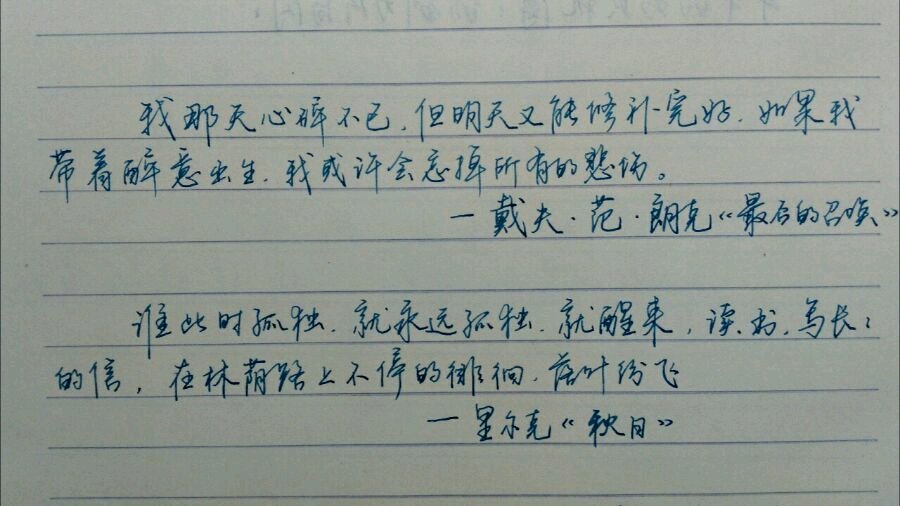 我那天心碎不已,但明天又能修补完好.如果我
带着醉意出生.我或许会忘掉所有的悲伤。
—戴夫·范·朗克《最后的召唤》
谁此时孤独.就永远孤独.就醒来,读书.写长:
的信,在林荫路上不停的徘徊.落叶纷飞
—里尔克《秋日》